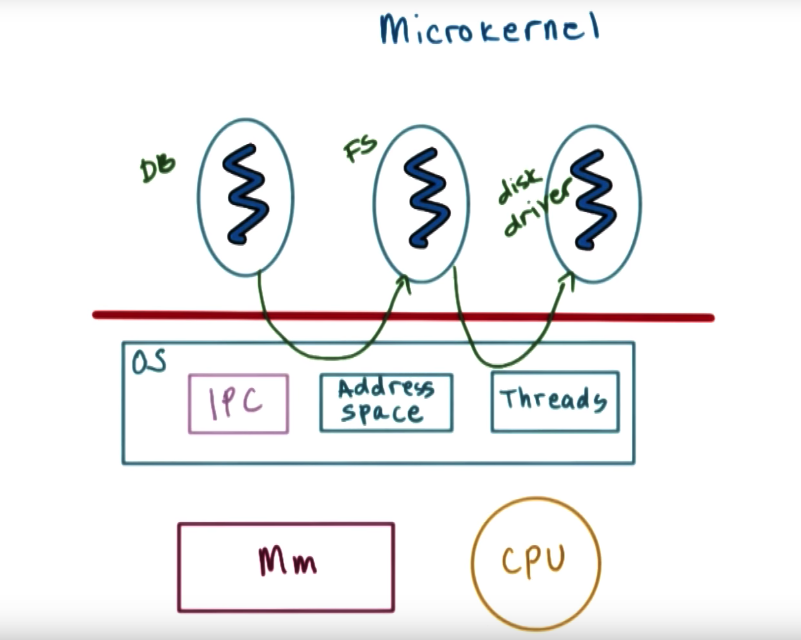 Microkernel
DB
FS
disk
driver
OS
IPC
Address
space
Threads
Mm
CPU